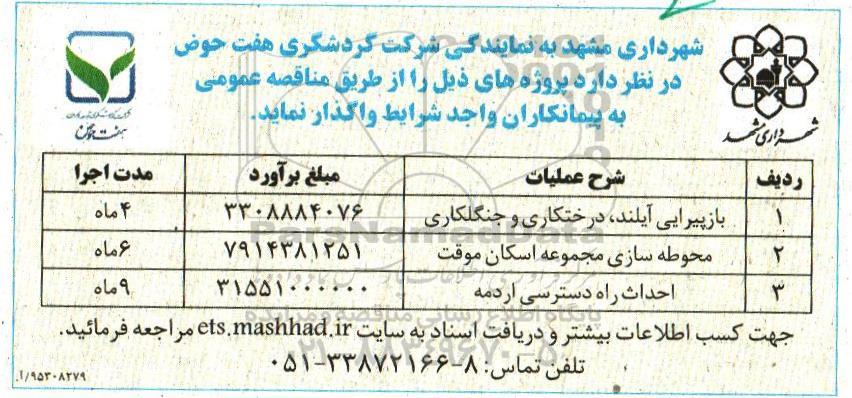 شهرداری مشهد به نمایندگی شرکت گردشگری هفت حوض
در نظر دارد پروژه های ذیل را از طریق مناقصه عمومی
به پیمانکاران واجد شرایط واگذار نماید.
شهرداری مشهد
هفت حوض
ردیف شرح عملیات مبلغ برآورد مدت اجرا
۱ بازپیرایی آیلند، درختکاری و جنگلکاری ۳۳۰۸۸۸۴۰۷۶ ۴ماه
۲ محوطه سازی مجموعه اسکان موقت ۷۹۱۴۳۸۱۲۵۱ ۶ماه
۳ احداث راه دسترسی اردمه ۳۱۵۵۱۰۰۰۰۰۰ ۹ماه
جهت کسب اطلاعات بیشتر و دریافت اسناد به سایت ets.mashhad.ir مراجعه فرمائید.
تلفن تماس: ۸-۳۳۸۷۲۱۶۶-۰۵۱
۹۵۳۰۸۲۷۹/آ
ParsNamadData
پایگاه اطلاع رسانی مناقصه و مزایده